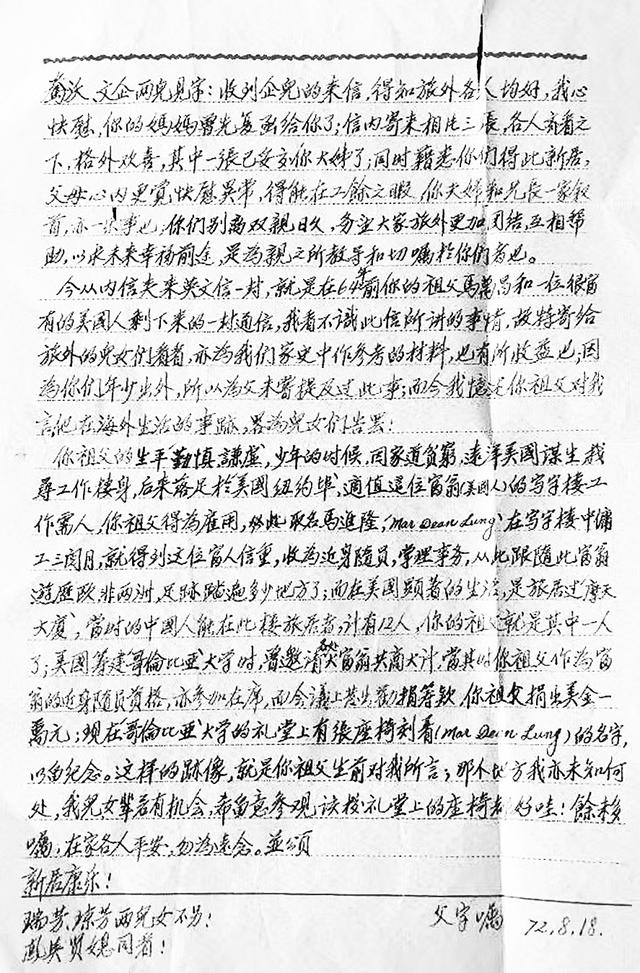 文企两兒見字：收到企兒的来信，得知旅外各人均好，我心
快慰，你的媽媽曾先复函给你了；信内寄来相片三張，各人齐看之
下，格外欢喜，其中一張已妥交你大姊了；同时藉悉你们得此新居，
父母心内更覚快慰異常，得能在工餘之暇，你夫婦和兄長一家叙
首，亦一乐事也，你们别离双親日久，务宜大家旅外更加团结，互相帮
助，以求未来幸福前途，是為親之所教导和切嘱於你们者也。
今从内信夹来英文信一封，就是在64年前你的祖父馬萬昌和一位很富
有的美國人剩下来的一封通信，我看不識此信所讲的事情，故特寄给
旅外的兒女们看看，亦為我们家史中作参考的材料，也有所收益也，因
為你们年少出外，所以為父未曾提及过此事；而今我憶述你祖父对我
言他在海外生活的事跡，畧為兒女们告罢：
你祖父的生平勤慎謙虚，少年的时候，因家道贫窮，遠洋美國謀生，找
尋工作棲身，后来落足於美國纽约埠，適值這位富翁(美國人)的写字楼工
作需人，你祖父得為雇用，於此取名馬進隆，(Mar Dean Lung)在写字楼中傭
工三閱月，就得到这位富人信重，收為近身随員，掌理事务，从此跟随此富翁
遊歷欧非两洲，足跡踏遍多少地方了；而在美国顕著的生活，是旅居过摩天
大廈，當时的中國人能在此楼旅居者，计有12人，你的祖父就是其中一人
了；美國筹建哥倫比亚大学时，曾邀请众富翁共商大计，當其时你祖父作為富
翁的近身随員資格，亦参加在席，而今議上共出劝捐筹款，你祖父捐出美金一
萬元；現在哥倫比亚大学的礼堂上有張座椅刻着(Mar Dean Lung)的名字，
以留纪念。这样的跡像，就是你祖父生前对我所言；那个地方我亦未知何
处，我兒女輩若有机会，希留意参观该校礼堂上的座椅都好哇！餘未多
嘱，在家各人平安，勿為遠念。並頌
新居康乐！
瑞芳、琼芳两兒女不另！
賢媳同看！
父字嘱 72.8.18.